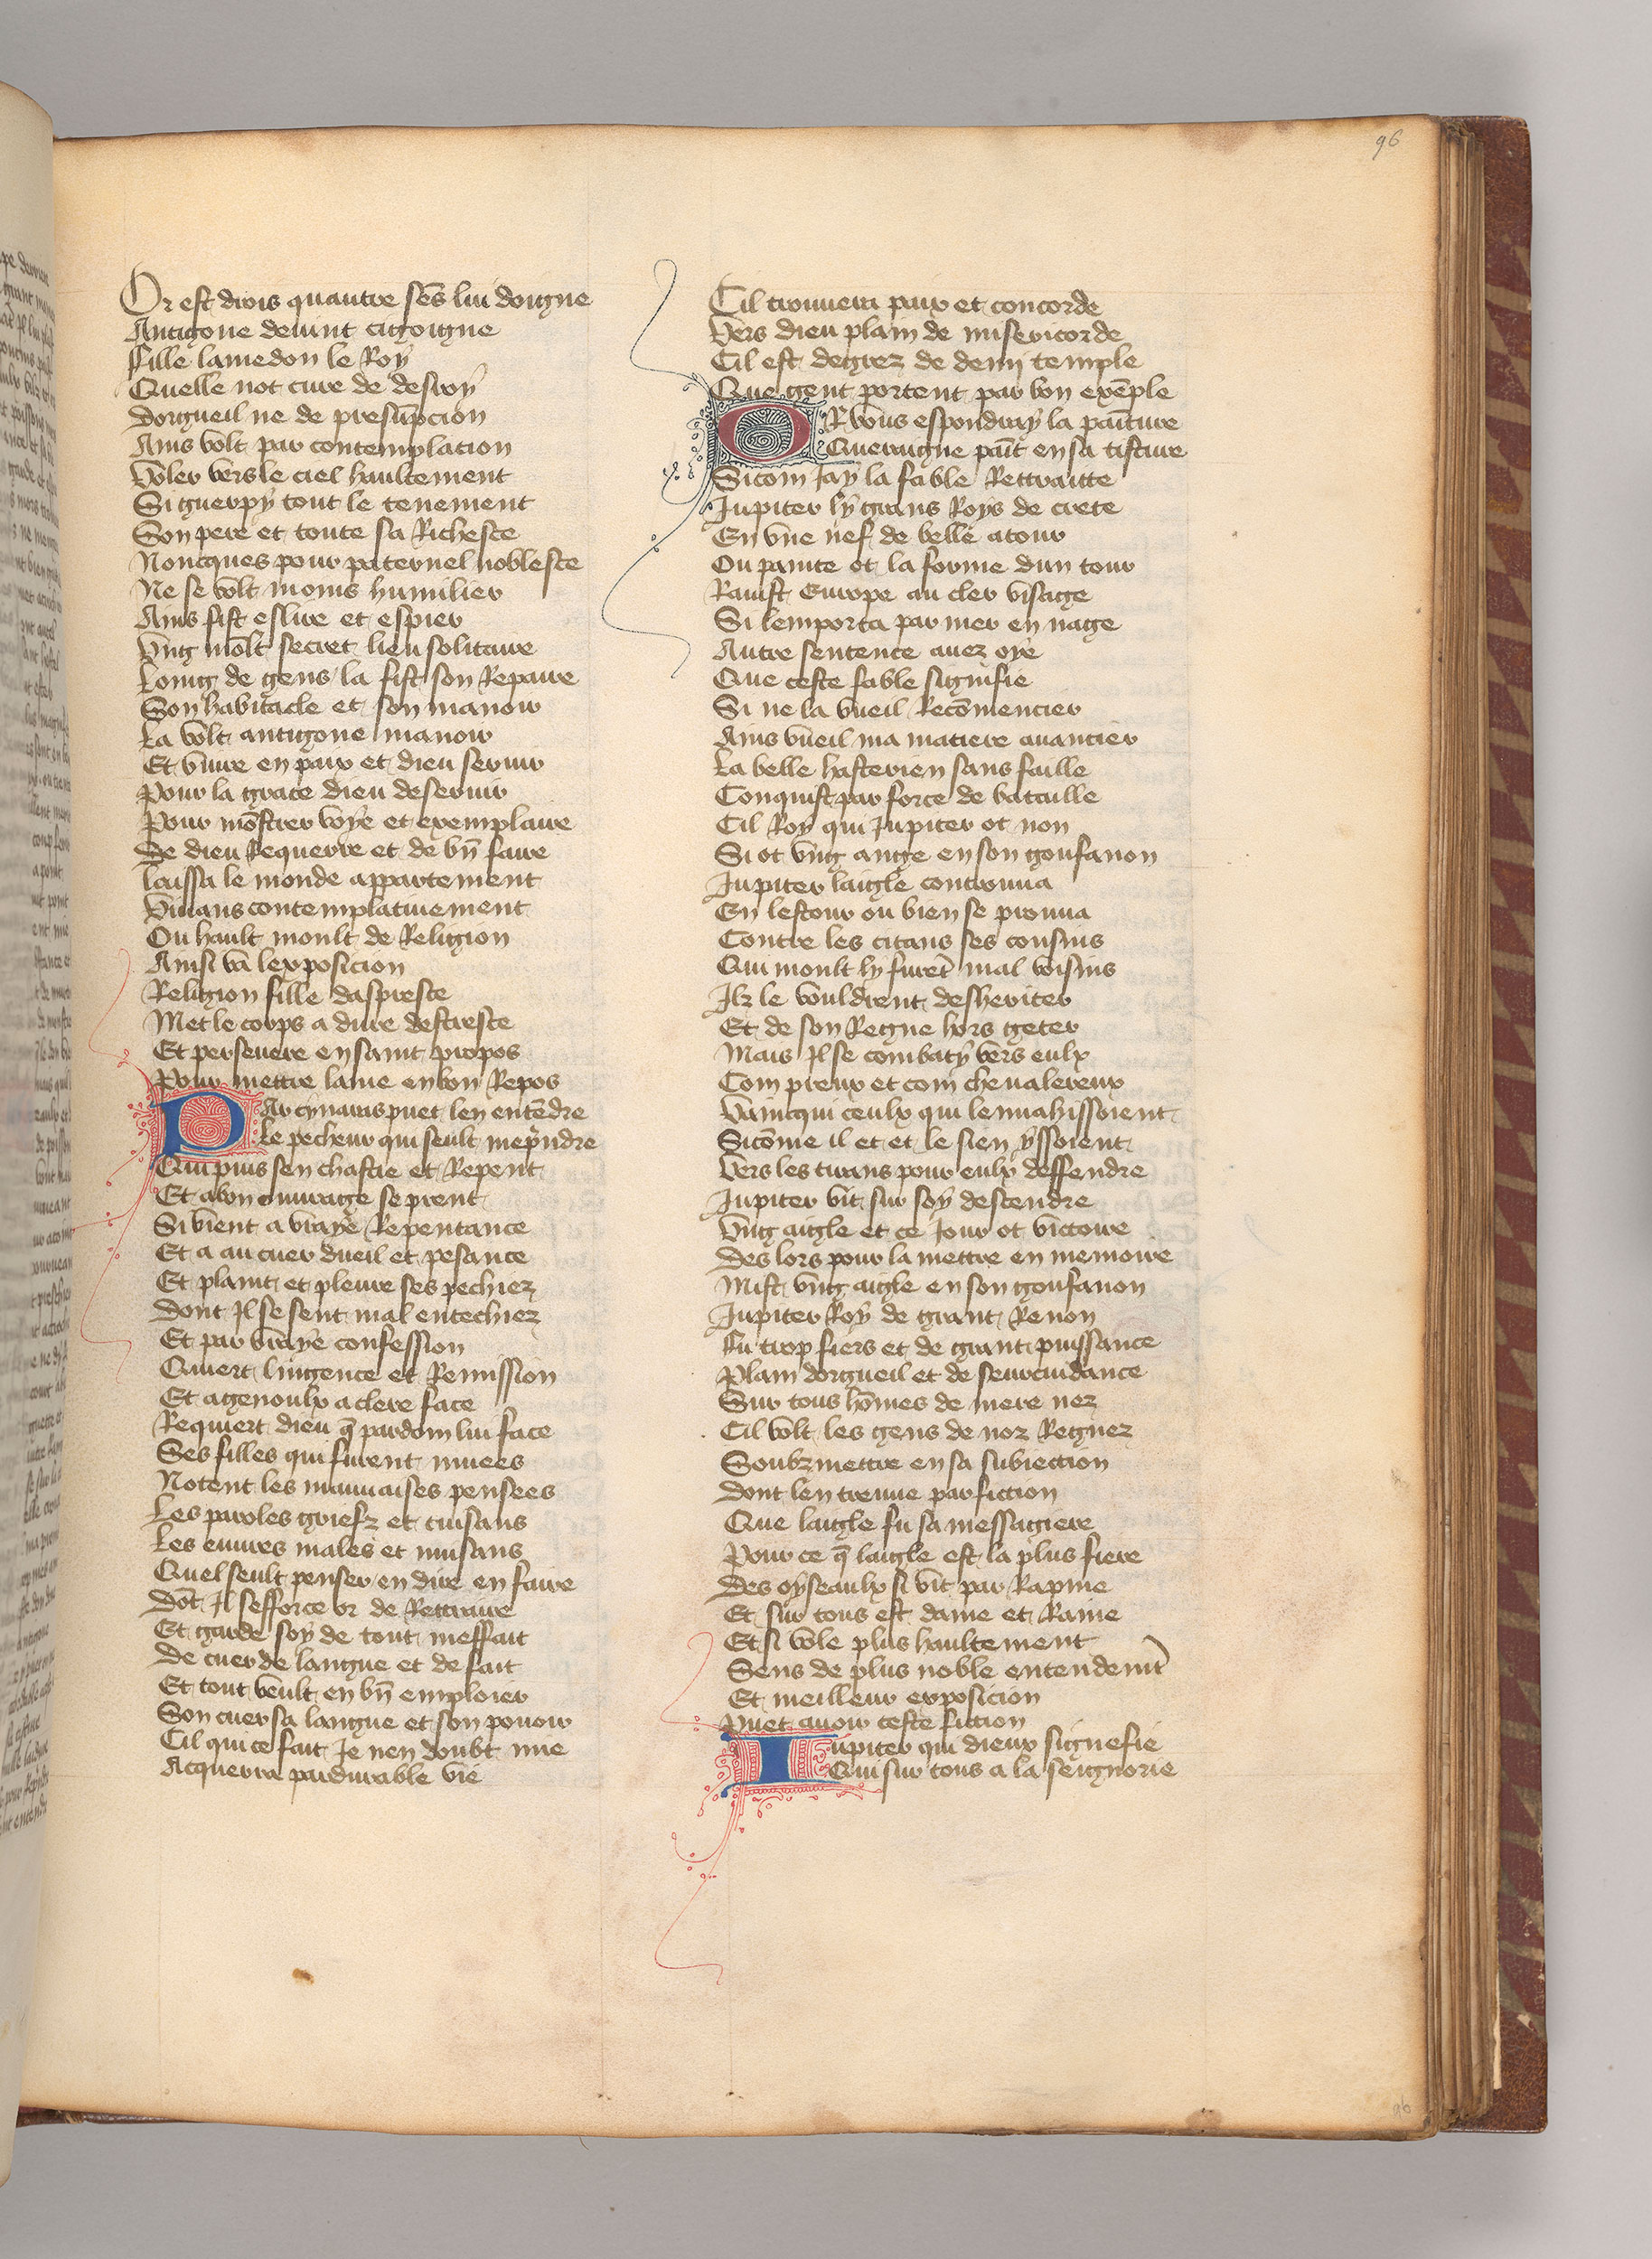 96
Or est drois quautre sēs lui doigne
Antigone deuint cigoigne
Fille lamedon le Roy
Quelle not cure de desroy
Dorgueil ne de presūpcion
Ains volt par contemplacion
Voler vers le ciel haultement
Si guerpy tout le tenement
Son pere et toute sa Richesce
Noncques pour paternel noblesce
Ne se volt moins humilier
Ains fist eslire et espier
Vng molt secret lieu solitaire
Loing de gens la fist son Repaire
Son habitacle et son manoir
La volt antigone manoir
Et viure en paix et dieu seruir
Pour la grace dieu deseruir
Pour mōstrer voye et exemplaire
De dieu Requerre et de bn̄ faire
Laissa le monde appartement
Viuans contemplatiuement
Ou hault moult de Religion
Ainsi va lexposicion
Religion fille daspresce
Met le corps a dure destresce
Et perseuere en saint propos
Pour mettre lame en bon Repos
Par cynaras puet len entēdre
Le pecheur qui seult mep̄ndre
Qui puis sen chastie et Repent
Et a bon ouurage se prent
Si vient a vraye Repentance
Et a au cuer dueil et pesance
Et plaint et pleure ses pechiez
Dont Il se sent mal entechiez
Et par vraye confession
Quiert lingence et Remission
Et agenoulx a clere face
Requiert dieu q̄ pardoin lui face
Ses filles qui furent muees
Notent les mauuaises pensees
Les paroles griefz et cuisans
Les euures males et nuisans
Quel seult penser en dire en faire
Dōt Il sefforce or de Rettraire
Et garde soy de tout meffait
De cuer de langue et de fait
Et tout veult en bn̄ emploier
Son cuer sa langue et son pouoir
Cil qui ce fait Je nen doubt mie
Acquerra pardurable vie
Cil trouuera paix et concorde
Vers dieu plain de misericorde
Cil est degrez de demi temple
Que gent portent par bon exēple
Or vous espondray la paīture
Queraigne paīt en sa tisture
Si com Jay la fable Rettraitte
Jupiter ly grans Roys de crete
En vne nef de belle atour
Ou painte ot la forme dun tour
Rauist Europe au cler visage
Si lemporta par mer en nage
Autre sentence auez oye
Que ceste fable signifie
Si ne la vueil Recōmencier
Ains vueil ma matiere auancier
La belle hasterien sans faille
Conquist par force de bataille
Cil Roy qui Jupiter ot non
Si ot vng ange en son goufanon
Jupiter laigle controuua
En lestour ou bien se prouua
Contre les titans ses cousins
Qui moult ly furēt mal voisins
Ilz le vouldrent desheriter
Et de son Regne hors geter
Mais Il se combaty vers eulx
Com preux et com cheualereux
Vainqui ceulx qui lenuahissoient
Sicōme il et et le sien yssoient
Vers les tirans pour eulx deffendre
Jupiter vit sur soy descendre
Vng aigle et ce Jour ot victoire
Des lors pour la mettre en memoire
Mist vng aigle en son goufanon
Jupiter Roy de grant Renon
Fu trop fiers et de grant puissance
Plain dorgueil et de seurcuidance
Sur tous hōmes de mere nez
Cil volt les gens de noz Regnez
Soubzmettre en sa subiection
Dont len treuue par fiction
Que laigle fu sa messagiere
Pour ce q̄ laigle est la plus fiere
Des oyseaulx si vit par Rapine
Et sur tous est dame et Raine
Et si vole plus haultement
Sens de plus noble entendemt̄
Et meilleur exposicion
Puet auoir ceste fiction
Iupiter qui dieux signefie
Qui sur tous a la seignorie
96